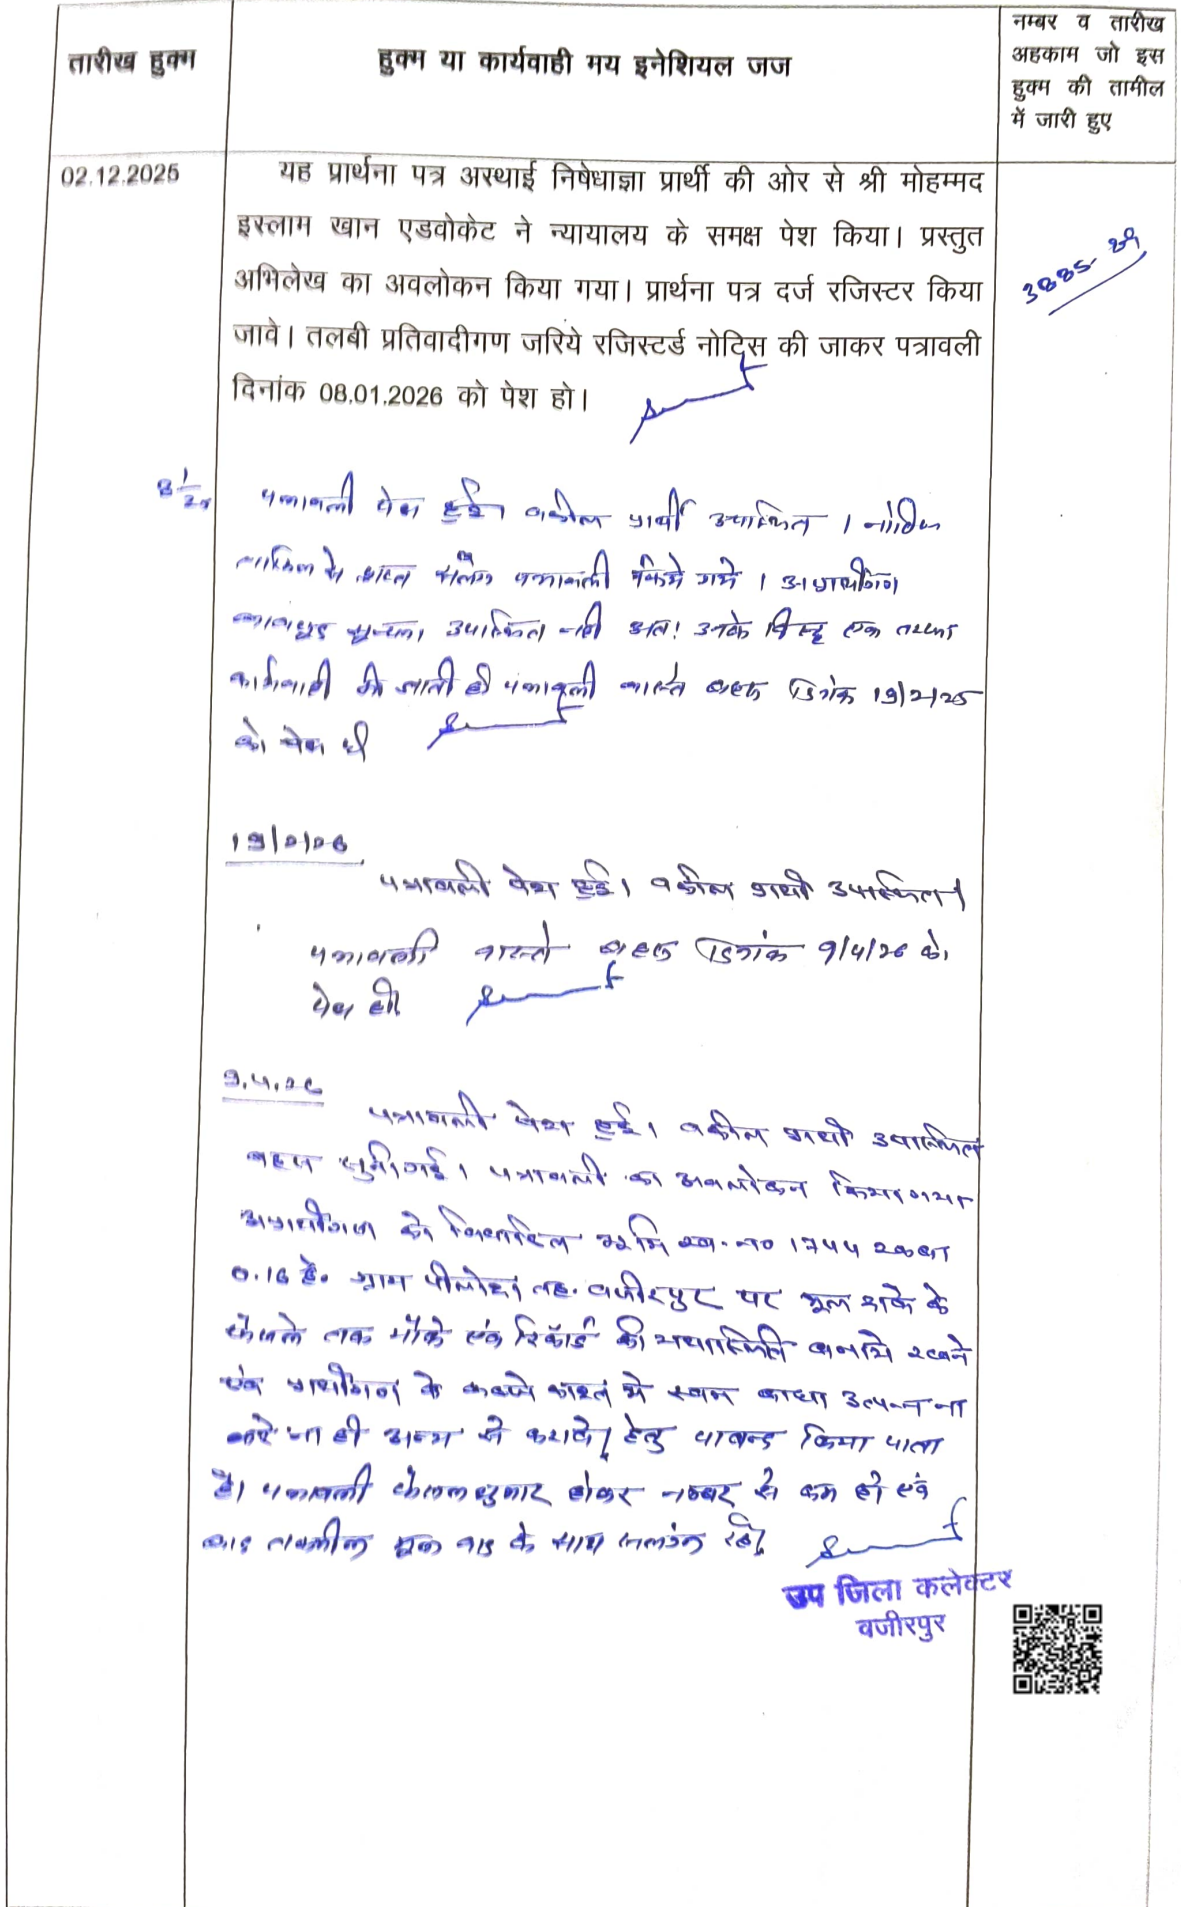 तारीख हुक्म
हुक्म या कार्यवाही मय इनेशियल जज
नम्बर व तारीख
अहकाम जो इस
हुक्म की तामील
में जारी हुए
02.12.2025
यह प्रार्थना पत्र अस्थाई निषेधाज्ञा प्रार्थी की ओर से श्री मोहम्मद
इस्लाम खान एडवोकेट ने न्यायालय के समक्ष पेश किया। प्रस्तुत
अभिलेख का अवलोकन किया गया। प्रार्थना पत्र दर्ज रजिस्टर किया
जावे। तलबी प्रतिवादीगण जरिये रजिस्टर्ड नोटिस की जाकर पत्रावली
दिनांक 08.01.2026 को पेश हो।
पत्रावली पेश हुई। वकील प्रार्थी उपस्थित। नोटिस
पत्रावली किये गये। अप्रार्थीगण
उपस्थित नही अतः उनके विरूद्ध एक तरफा
कार्यवाही की जाती है पत्रावली वास्ते बहस दिनांक 19/2/26
को पेश हो
19/2/26
पत्रावली पेश हुई। वकील प्रार्थी उपस्थित।
पत्रावली वास्ते बहस दिनांक 9/4/26 को
पेश हो
9.4.26
पत्रावली पेश हुई। वकील प्रार्थी उपस्थित
बहस सुनी गई। पत्रावली का अवलोकन किया गया
अप्रार्थीगण को विवादित भूमि ख.नं० 1744 रकबा
0.16 है. ग्राम पीलोदा तह. वजीरपुर पर मूल वाद के
फैसले तक मौके एवं रिकॉर्ड की यथास्थिति बनाये रखने
एवं प्रार्थीगण के कब्जे काश्त मे स्वयं बाधा उत्पन्न ना
करे ना ही अन्य से करावे, हेतु पाबन्द किया जाता
है। पत्रावली फैसल शुमार होकर नम्बर से कम हो एवं
बाद तकमील मूल वाद के साथ संलग्न रहे।
उप जिला कलेक्टर
वजीरपुर